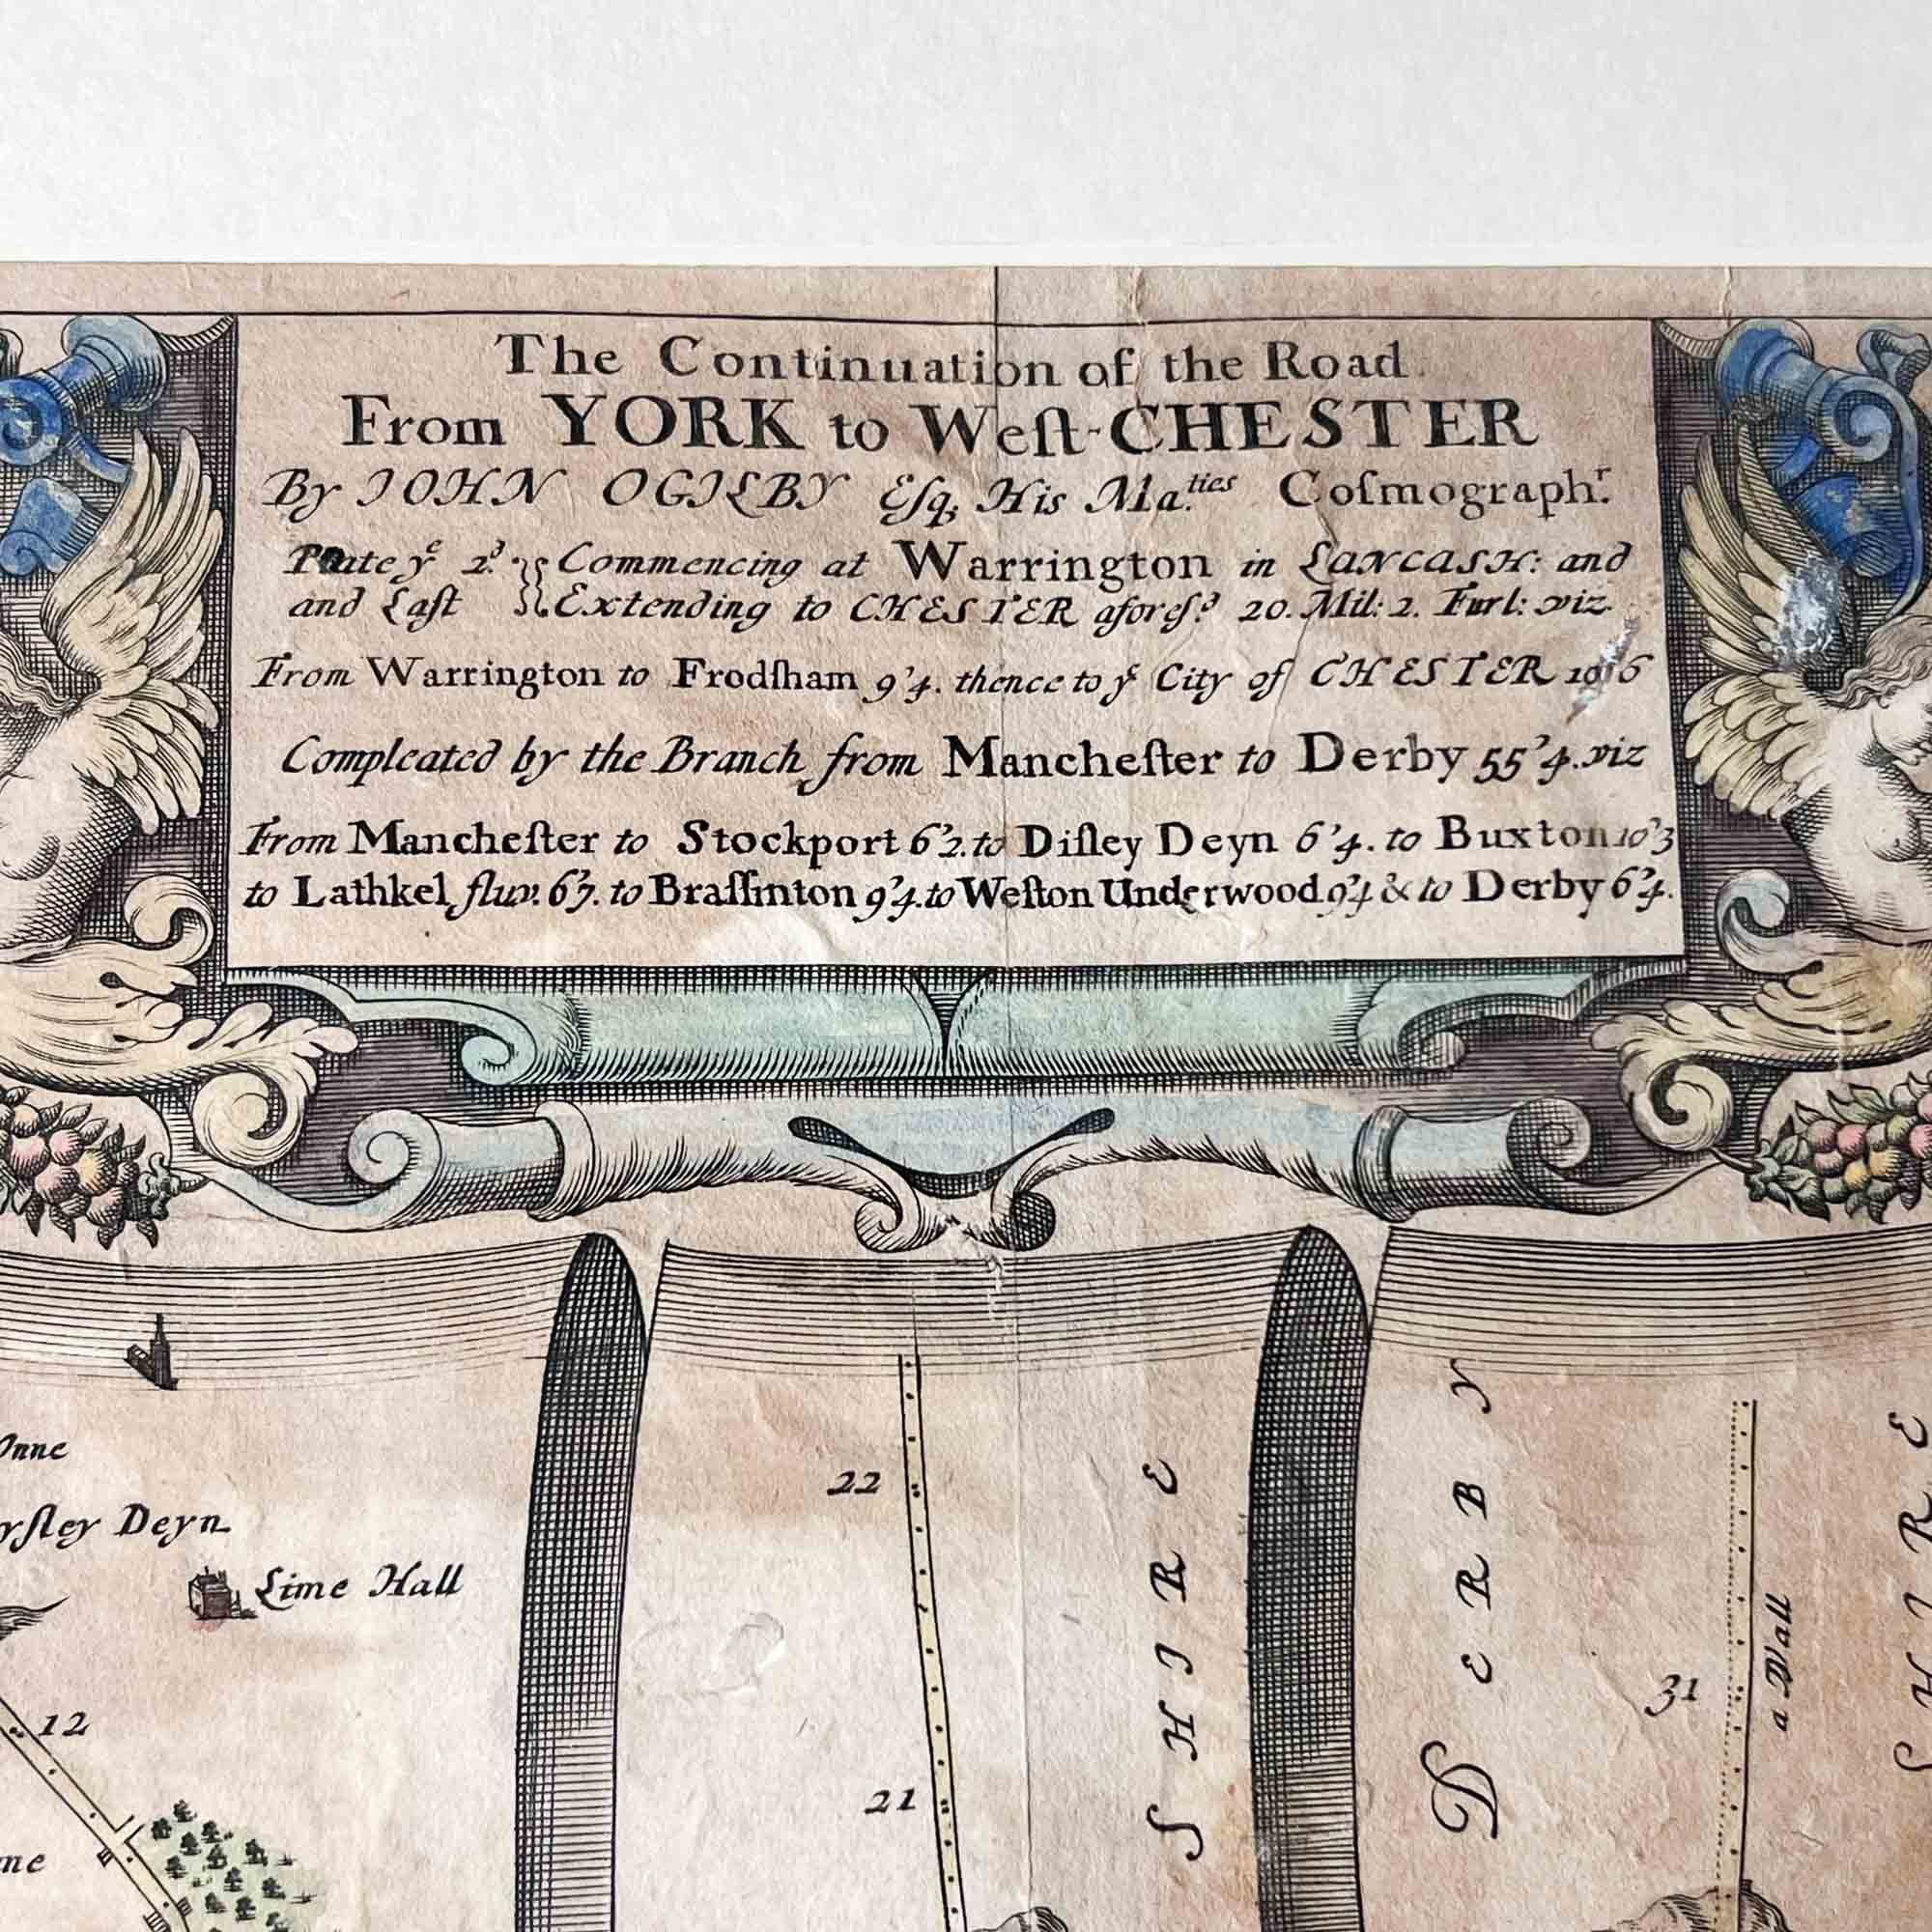 The Continuation of the Road
From YORK to Weſt-CHESTER
By IOHN OGILBY Eſq; His Ma.ties Coſmographr.
Plate ye 2d. Commencing at Warrington in LANCASH: and
and Laſt Extending to CHESTER aforeſd. 20. Mil: 2. Furl: viz.
From Warrington to Frodſham 9'4. thence to ye City of CHESTER 10'6
Compleated by the Branch from Mancheſter to Derby 55'4. viz
From Mancheſter to Stockport 6'2. to Diſley Deyn 6'4. to Buxton 10'3
to Lathkel fluv. 6'7. to Braſſinton 9'4. to Weſton Underwood 9'4 & to Derby 6'4.
yſley Deyn
Lime Hall
12
22
21
SHIRE
DERBY
31
a Wall
SHIRE